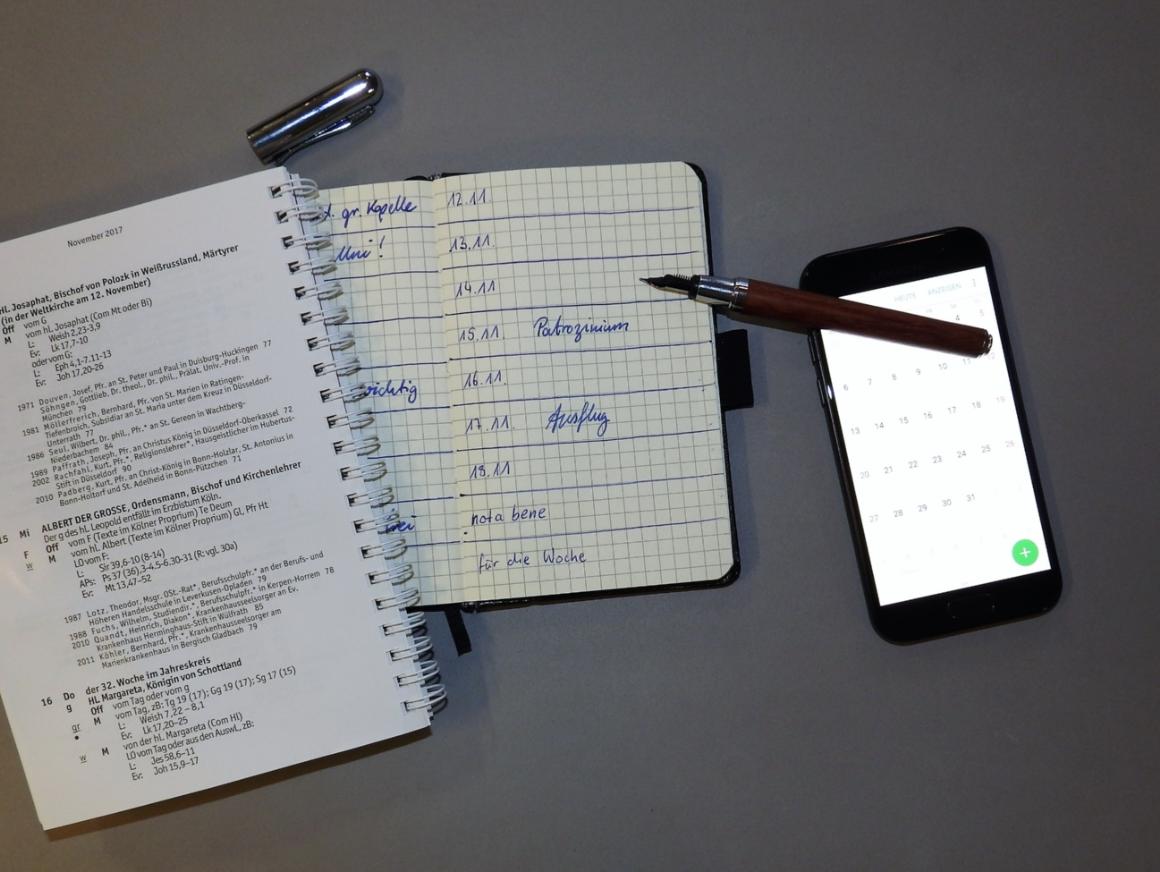 November 2017
Hl. Josaphat, Bischof von Polozk in Weißrussland, Märtyrer
(in der Weltkirche am 12. November)
Off vom G
M vom hl. Josaphat (Com Mt oder Bi)
L: Weish 2,23-3,9
Ev: Lk 17,7-10
oder vom G:
L: Eph 4,1-7.11-13
Ev: Joh 17,20-26
1971 Douven, Josef, Pfr. an St. Peter und Paul in Duisburg-Huckingen 77
Söhngen, Gottlieb, Dr. theol., Dr. phil., Prälat, Univ.-Prof. in
München 79
1981 Möllerfrerich, Bernhard, Pfr. von St. Marien in Ratingen-
Tiefenbroich, Subsidiar an St. Maria unter dem Kreuz in Düsseldorf-
Unterrath 77
1986 Seul, Wilbert, Dr. phil., Pfr.* an St. Gereon in Wachtberg-
Niederbachem 84
1989 Paffrath, Joseph, Pfr. an Christus König in Düsseldorf-Oberkassel 72
2002 Rachfahl, Kurt, Pfr.*, Religionslehrer*, Hausgeistlicher im Hubertus-
Stift in Düsseldorf 90
2010 Padberg, Kurt, Pfr. an Christ-König in Bonn-Holzlar, St. Antonius in
Bonn-Holtorf und St. Adelheid in Bonn-Pützchen 71
15 Mi ALBERT DER GROSSE, Ordensmann, Bischof und Kirchenlehrer
Der g des hl. Leopold entfällt im Erzbistum Köln.
F Off vom F (Texte im Kölner Proprium) Te Deum
w M vom hl. Albert (Texte im Kölner Proprium) Gl, Pfr Ht
LO vom F:
L: Sir 39,6-10 (8-14)
APs: Ps 37 (36),3-4.5-6.30-31 (R: vgl. 30a)
Ev: Mt 13,47-52
1987 Lotz, Theodor, Msgr. OSt.-Rat*, Berufsschulpfr.* an der Berufs- und
Höheren Handelsschule in Leverkusen-Opladen 79
1988 Fuchs, Wilhelm, Studiendir.*, Berufsschulpfr.* in Kerpen-Horrem 78
2010 Quandt, Heinrich, Diakon*, Krankenhausseelsorger an Ev.
Krankenhaus Herminghaus-Stift in Wülfrath 85
2011 Köhler, Bernhard, Pfr.*, Krankenhausseelsorger am
Marienkrankenhaus in Bergisch Gladbach 79
16 Do der 32. Woche im Jahreskreis
g Hl. Margareta, Königin von Schottland
Off vom Tag oder vom g
gr M vom Tag, zB: Tg 19 (17); Gg 19 (17); Sg 17 (15)
L: Weish 7,22 – 8,1
Ev: Lk 17,20-25
w M von der hl. Margareta (Com Hl)
LO vom Tag oder aus den AuswL, zB:
L: Jes 58,6-11
Ev: Joh 15,9-17
gr. Kapelle
wichtig
12.11.
13.11.
14.11
15.11. Patrozinium
16.11.
17.11. Ausflug
18.11
nota bene
für die Woche
HEUTE ANZEIGEN
4 5
6 7 8 9 10 11
13 14 15 16 17 18 19
20 21 22 23 24 25 26
27 28 29 30 31